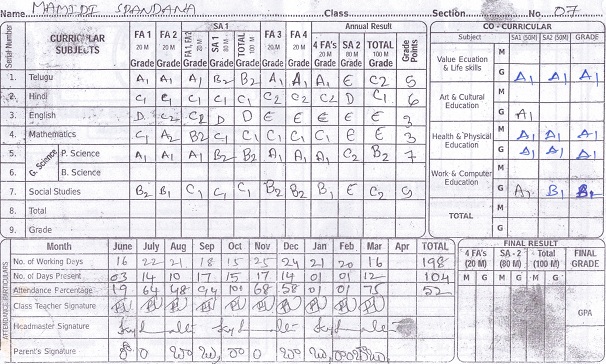 Name MAMIDI SPANDANA Class Section No. 07
Serial Number CURRICULAR SUBJECTS FA 1 20 M Grade FA 2 20 M Grade FA 1, FA 2 20 M Grade SA 1 SA 1 80 M Grade TOTAL 100 M Grade FA 3 20 M Grade FA 4 20 M Grade Annual Result 4 FA's 20 M Grade SA 2 80 M Grade TOTAL 100 M Grade Grade Points
1. Telugu A1 A1 A1 B2 B2 A1 A1 A1 E C2 5
2. Hindi C1 C1 C1 C1 C1 C2 C2 C2 D C1 6
3. English D C2 C2 D D E E E E E 3
4. Mathematics C1 A2 B2 C1 C1 C1 C1 C1 E E 3
G. Science
5. P. Science A1 A1 A1 B2 B2 A1 A1 A1 C2 B2 7
6. B. Science
7. Social Studies B2 B1 C1 C1 C1 B2 B2 B1 E C2
8. Total
9. Grade
CO - CURRICULAR
Subject SA1 (50M) SA2 (50M) GRADE
Value Ecuation & Life skills M
G A1 A1 A1
Art & Cultural Education M
G A1
Health & Physical Education M A1 A1 A1
G A1 A1 A1
Work & Computer Education M
G A1 B1 B1
TOTAL M
G
ATTENDANCE PARTICULARS
Month June July Aug Sep Oct Nov Dec Jan Feb Mar Apr TOTAL
No. of Working Days 16 22 21 18 15 25 24 21 20 16 198
No. of Days Present 03 14 10 17 15 17 14 01 01 12 104
Attendance Percentage 19 64 48 94 101 68 58 01 01 75 52
Class Teacher Signature
Headmaster Signature
Perent's Signature
FINAL RESULT
4 FA's (20 M) SA - 2 (80 M) Total (100 M) FINAL GRADE
M G M G M G
GPA